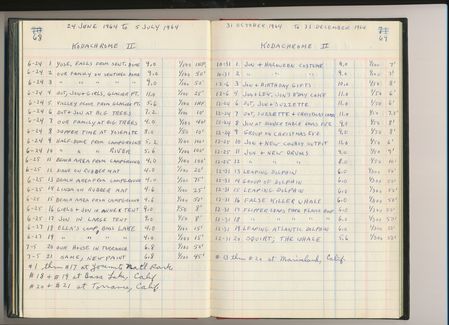 68
24 JUNE 1964 TO 5 JULY 1964
KODACHROME II
6-24 1 YOSE. FALLS FROM SENT. DOME 9.0 1/100 INF
6-24 2 OUR FAMILY ON SENTINEL DOME 9.0 1/100 50'
6-24 3 " " " " 9.0 1/100 50'
6-24 4 JON, GIRLS, GLACIER PT. 11.0 1/100 25'
6-24 5 VALLEY FLOOR FROM GLACIER PT. 5.6 1/100 INF
6-24 6 JON AT BIG TREES 4.0 1/100 10'
6-24 7 OUR FAMILY AT BIG TREES 4.0 1/100 40'
6-24 8 SUPPER TIME AT YOSEMITE 8.0 1/50 10'
6-24 9 HALF DOME FROM CAMPGROUND 5.6 1/100
6-24 10 " " " RIVER 5.6 1/100 100'
6-25 11 BEACH AREA FROM CAMPGROUND 4.0 1/100 100'
6-25 12 DIANE ON RUBBER MAT 4.0 1/100 20'
6-25 13 BEACH AREA FROM CAMPGROUND 4.0 1/100 75'
6-25 14 LINDA ON RUBBER MAT 4.0 1/100 25'
6-25 15 BEACH AREA FROM CAMPGROUND 4.0 1/100 50'
6-25 16 GIRLS + JON IN TENT 4.0 1/50 8'
6-25 17 JON IN LARGE TENT 4.0 1/50 8'
6-27 18 CAMP, BASS LAKE 4.0 1/100 50'
6-27 19 " " " " 4.0 1/100 15'
7-5 20 OUR HOUSE IN TORRANCE 6.8 1/100 50'
7-5 21 SAME, NEW PAINT 6.8 1/100 45'
#1 thru #17 at Yosemite Nat'l Park
#18 + #19 at Bass Lake, Calif
#20 + #21 at Torrance, Calif
69
31 OCTOBER 1964 TO 31 DECEMBER 1964
KODACHROME II
10-31 1 JON + HALLOWEEN COSTUME 9.0 1/100 7'
10-31 2 " " " 9.0 1/100 7'
12-6 3 JON + BIRTHDAY GIFTS 10.0 1/50 8'
12-6 4 JON + LEV, JON'S B'DAY CAKE 11.0 1/50 6'
12-24 6 JON, JON + SUZZETTE 11.0 1/50 6'
12-24 7 JON, SUZZETTE + CHRISTMAS 11.0 1/50 7'
12-24 8 JON AT DINNER TABLE XMAS EVE 9.0 1/50 8'
12-24 9 GROUP ON CHRISTMAS EVE 9.0 1/50 8'
12-25 10 JON + NEW COWBOY OUTFIT 11.0 1/50 6'
12-25 11 JON + NEW DRUMS 9.0 1/50 9'
12-25 12 " " " 8.0 1/50 10'
12-31 13 LEAPING DOLPHIN 6.0 1/200 50'
12-31 14 GROUP OF DOLPHIN 6.0 1/200 50'
12-31 15 LEAPING DOLPHIN 6.0 1/200 50'
12-31 16 FALSE KILLER WHALE 6.0 1/200 50'
12-31 17 FLIPPER 6.0 1/200 50'
12-31 18 " " " " 6.0 1/200 50'
12-31 19 LEAPING ATLANTIC DOLPHIN 6.0 1/200 50'
12-31 20 SQUIRT, THE WHALE 5.6 1/200
#13 thru #20 at Marineland, Calif.